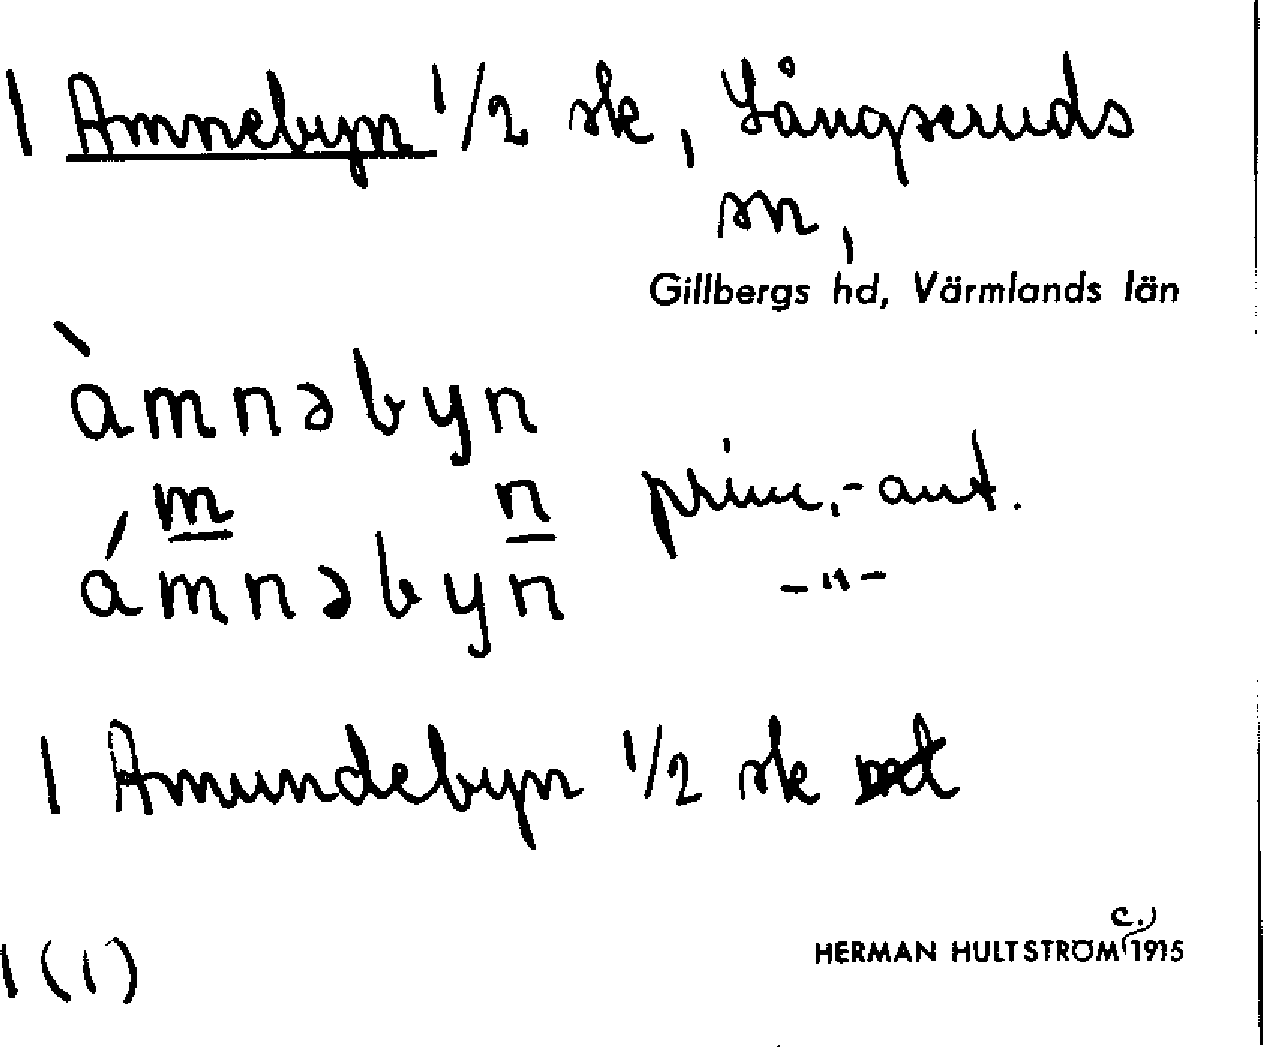 1 Amnebyn 1/2 sk, Långseruds
sn,
Gillbergs hd, Värmlands län
àmnəbyn
m n prim.-ant.
ámnəbyn -"-
1 Amundebyn 1/2 sk
c.)
1 (1) HERMAN HULTSTRÖM 1915